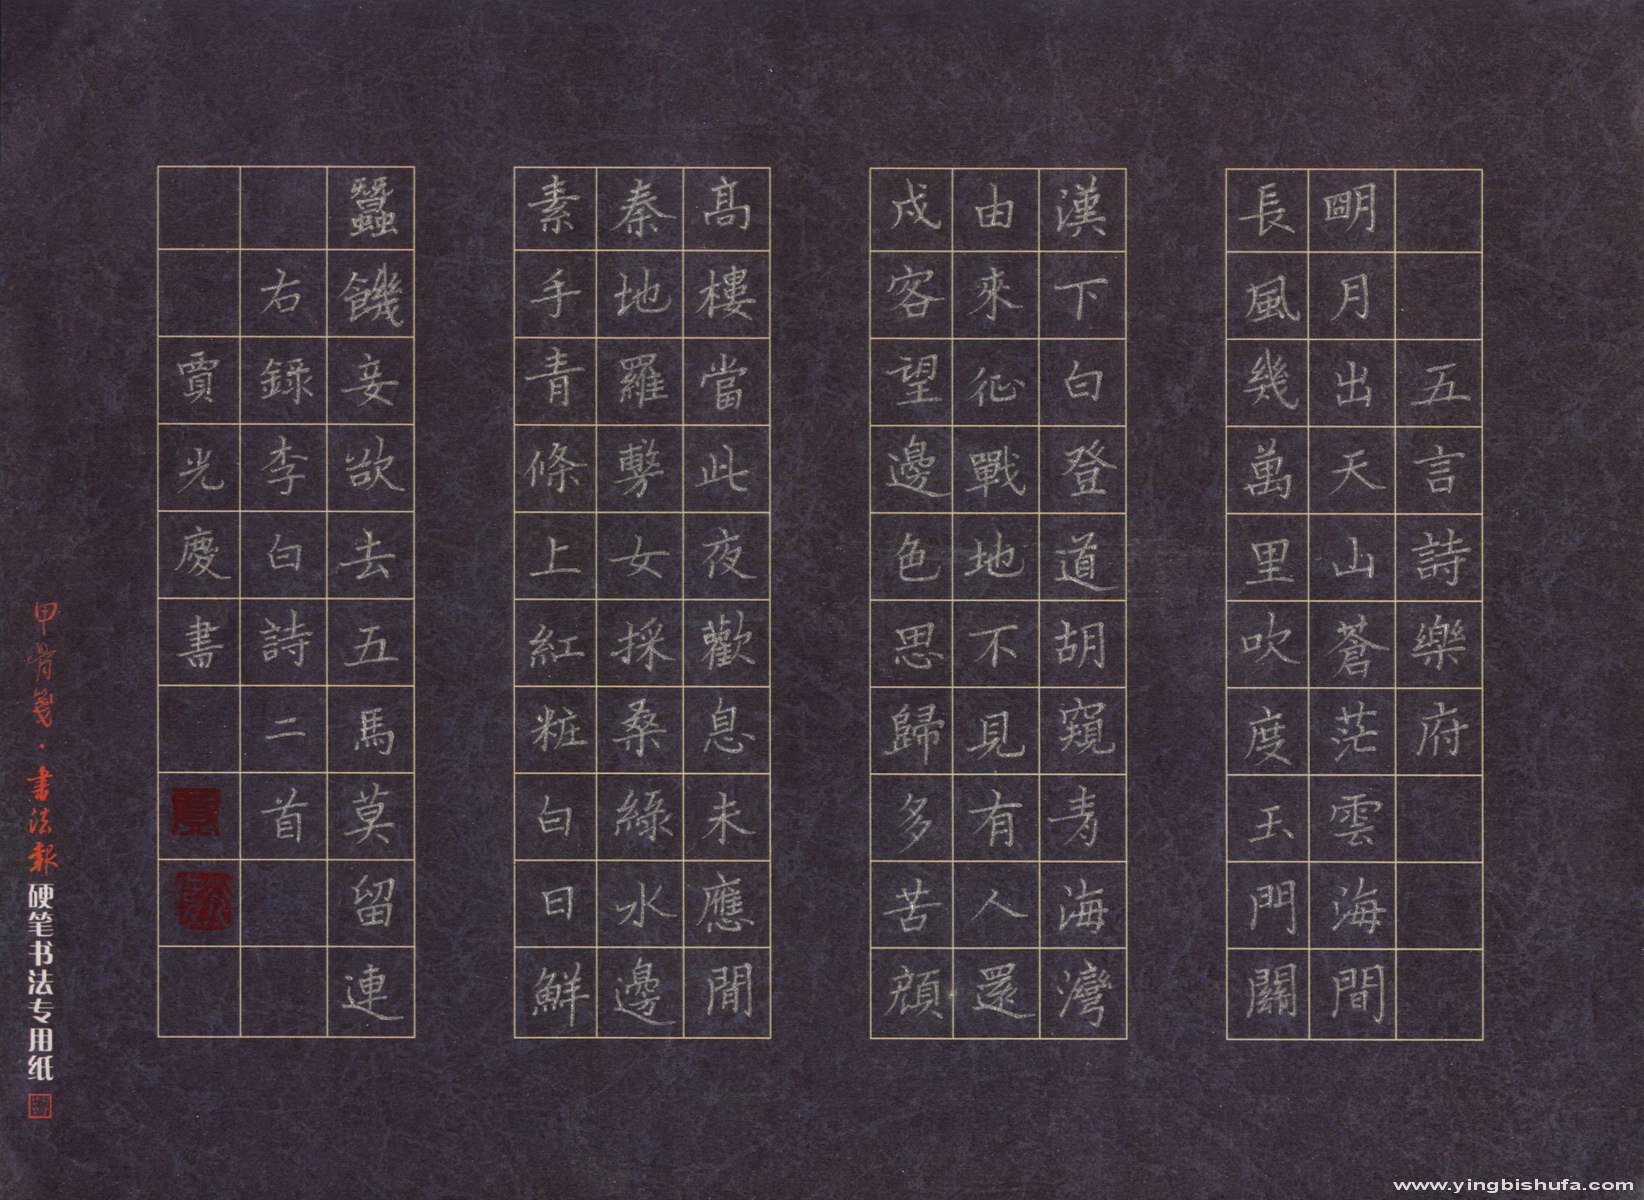 五言詩樂府
明月出天山蒼茫雲海間
長風幾萬里吹度玉門關
漢下白登道胡窺青海灣
由來征戰地不見有人還
戍客望邊色思歸多苦顔
高樓當此夜歡息未應閒
秦地羅敷女採桑綠水邊
素手青條上紅粧白日鮮
蠶饑妾欲去五馬莫留連
右錄李白詩二首
賈光慶書
甲骨箋·書法報硬笔书法专用纸
www.yingbishufa.com